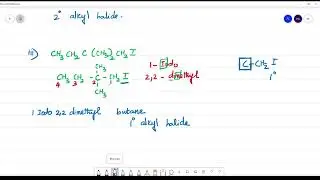 2° alkyl halide.
iii) CH3 CH2 C (CH3)2 CH2 I
CH3
CH3 CH2 - C - CH2 I
4 3 2 1
CH3
1 - Iodo
2,2 - dimethyl
C - CH2 I
1°
1 Iodo 2,2 dimethyl butane
1° alkyl halide